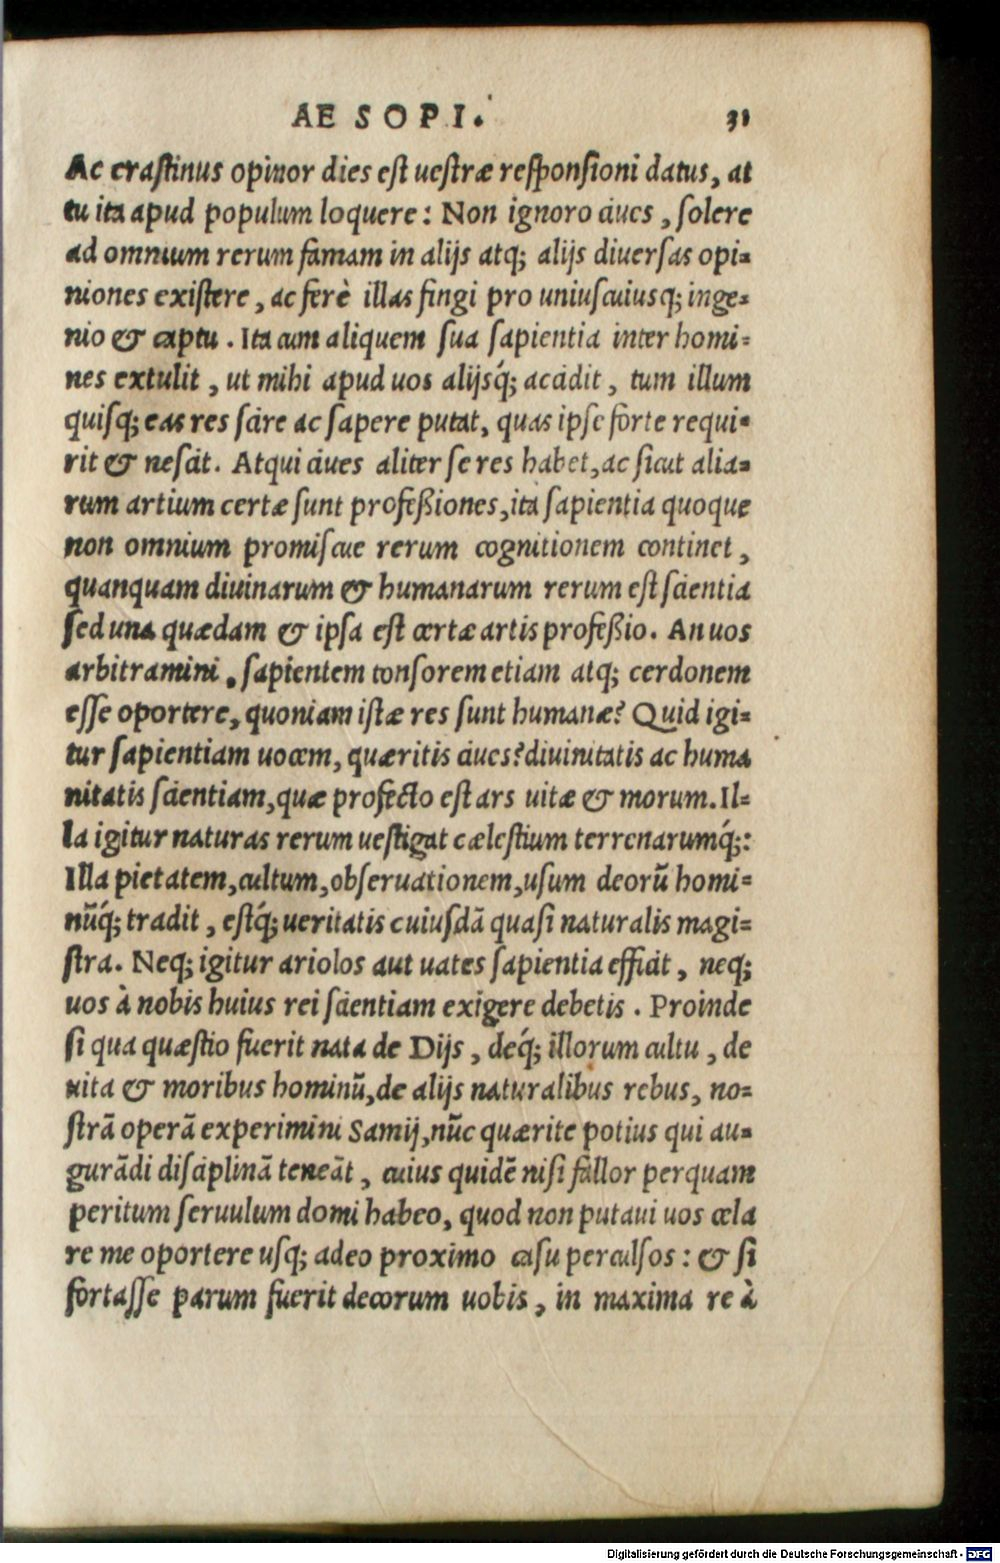 AESOPI. 31
Ac crastinus opinor dies est uestræ responsioni datus, at
tu ita apud populum loquere: Non ignoro ciues, solere
ad omnium rerum famam in alijs atq; alijs diuersas opi=
niones existere, ac ferè illas fingi pro uniuscuiusq; inge=
nio & captu. Ita cum aliquem sua sapientia inter homi=
nes extulit, ut mihi apud uos alijsq́; accidit, tum illum
quisq; eas res scire ac sapere putat, quas ipse forte requi=
rit & nescit. Atqui ciues aliter se res habet, ac sicut alia=
rum artium certæ sunt profeßiones, ita sapientia quoque
non omnium promiscue rerum cognitionem continet,
quanquam diuinarum & humanarum rerum est scientia
sed una quædam & ipsa est certæ artis profeßio. An uos
arbitramini, sapientem tonsorem etiam atq; cerdonem
esse oportere, quoniam istæ res sunt humanæ? Quid igi=
tur sapientiam uocem, quæritis ciues? diuinitatis ac huma
nitatis scientiam, quæ profecto est ars uitæ & morum. Il=
la igitur naturas rerum uestigat cælestium terrenarumq́;:
Illa pietatem, cultum, obseruationem, usum deorũ homi=
nũq́; tradit, estq́; ueritatis cuiusdã quasi naturalis magi=
stra. Neq; igitur ariolos aut uates sapientia efficit, neq;
uos à nobis huius rei scientiam exigere debetis. Proinde
si qua quæstio fuerit nata de Dijs, deq́; illorum cultu, de
uita & moribus hominũ, de alijs naturalibus rebus, no=
strã operã experimini Samij, nũc quærite potius qui au=
gurãdi disciplinã teneãt, cuius quidẽ nisi fallor perquam
peritum seruulum domi habeo, quod non putaui uos cela
re me oportere usq; adeo proximo casu perculsos: & si
fortasse parum fuerit decorum uobis, in maxima re à
Digitalisierung gefördert durch die Deutsche Forschungsgemeinschaft - DFG